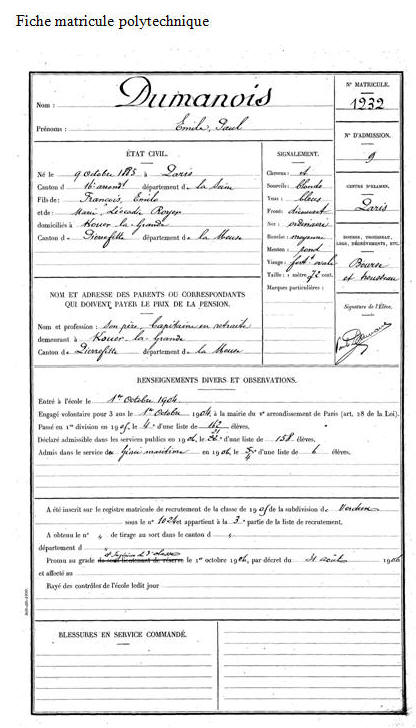 Fiche matricule polytechnique
Nom : Dumanois
Prénoms : Emile, Paul
N° MATRICULE.
1232
N° D'ADMISSION.
9
CENTRE D'EXAMEN.
Paris
BOURSE, TROUSSEAU, LEGS, DÉGRÈVEMENTS, ETC.
Bourse
et trousseau
Signature de l'Élève.
ÉTAT CIVIL.
Né le 9 octobre 1885 à Paris
Canton d 16e arrondt département de la Seine
Fils de : François, Emile
et de : Marie, Léocadie Royer
domiciliés à Kouer la Grande
Canton de Pierrefitte département de la Meuse
SIGNALEMENT.
Cheveux : et
Sourcils : blonds
Yeux : bleus
Front : découvert
Nez : ordinaire
Bouche : moyenne
Menton : rond
Visage : ovale
Taille : 1 mètre 72 cent.
Marques particulières :
NOM ET ADRESSE DES PARENTS OU CORRESPONDANTS
QUI DOIVENT PAYER LE PRIX DE LA PENSION.
Nom et profession : Son père, Capitaine en retraite
demeurant à Kouer-la-Grande
Canton de Pierrefitte département de la Meuse
RENSEIGNEMENTS DIVERS ET OBSERVATIONS.
Entré à l'école le 1er Octobre 1904
Engagé volontaire pour 3 ans le 1er Octobre 1904, à la mairie du 5e arrondissement de Paris (art. 28 de la Loi).
Passé en 1re division en 1905, le 4e d'une liste de 162 élèves.
Déclaré admissible dans les services publics en 1906, le d'une liste de 158 élèves.
Admis dans le service du Génie maritime en 1906, le d'une liste de 6 élèves.
A été inscrit sur le registre matricule de recrutement de la classe de 1905 de la subdivision de Verdun
sous le n° 1026 et appartient à la 3e partie de la liste de recrutement.
A obtenu le n° de tirage au sort dans le canton d
département d
Promu au grade de sous-lieutenant de réserve le 1er octobre 1906, par décret du 31 août 1906
et affecté au
Rayé des contrôles de l'école ledit jour
BLESSURES EN SERVICE COMMANDÉ.